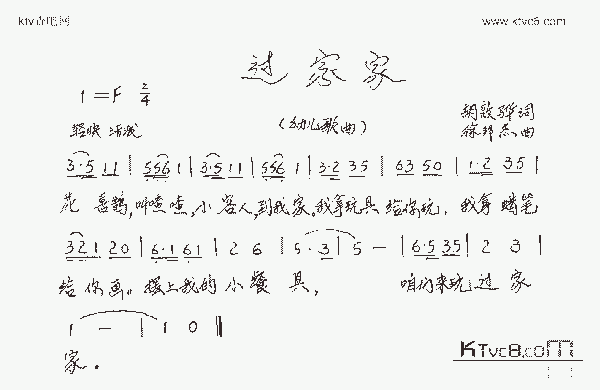 www.ktvc8.com
过家家
1=F 2/4
轻快 活泼
(幼儿歌曲)
胡敦骅词
徐邦杰曲
3·5 11 | 556 1 | 3·5 11 | 556 1 | 3·2 35 | 63 50 | 1·2 35 |
花喜鹊,叫喳喳,小客人,到我家。我拿玩具给你玩,我拿蜡笔
321 20 | 6·1 61 | 2 6 | 5·3 | 5 — | 6·5 35 | 2 3 |
给你画。摆上我的小餐具, 咱们来玩过家
1 — | 1 0 ‖
家。
KTvc8.com